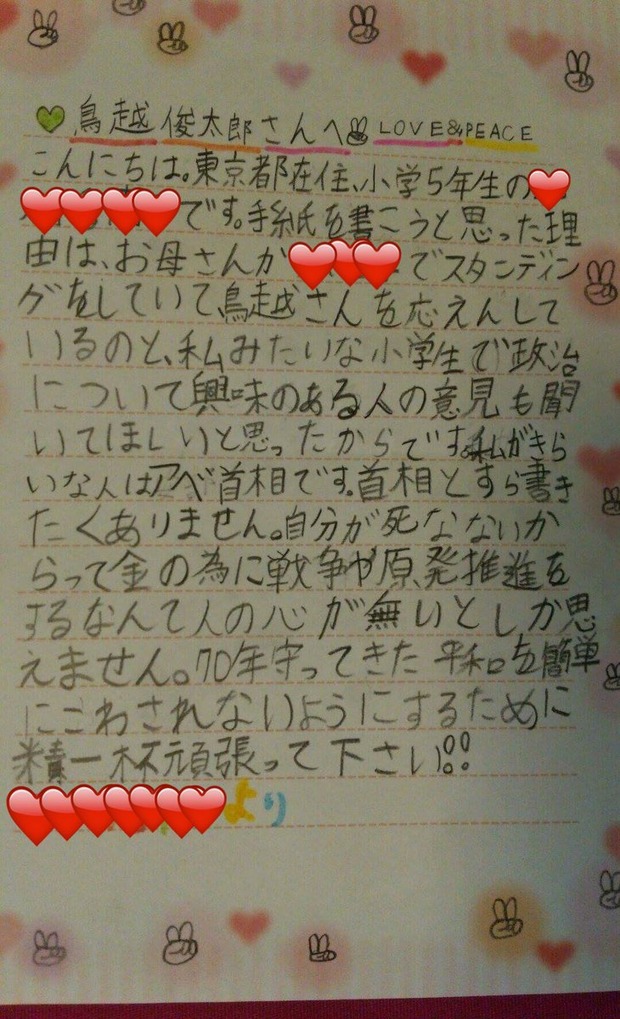 鳥越俊太郎さんへ LOVE&PEACE
こんにちは。東京都在住、小学5年生の
です。手紙を書こうと思った理
由は、お母さんが でスタンディン
グをしていて鳥越さんを応えんして
いるのと、私みたいな小学生で政治
について興味のある人の意見も聞
いてほしいと思ったからです。私がきら
いな人はアベ首相です。首相とすら書き
たくありません。自分が死なないか
らって金の為に戦争や原発推進を
するなんて人の心が無いとしか思
えません。70年守ってきた平和を簡単
にこわされないようにするために
精一杯頑張って下さい!!
より